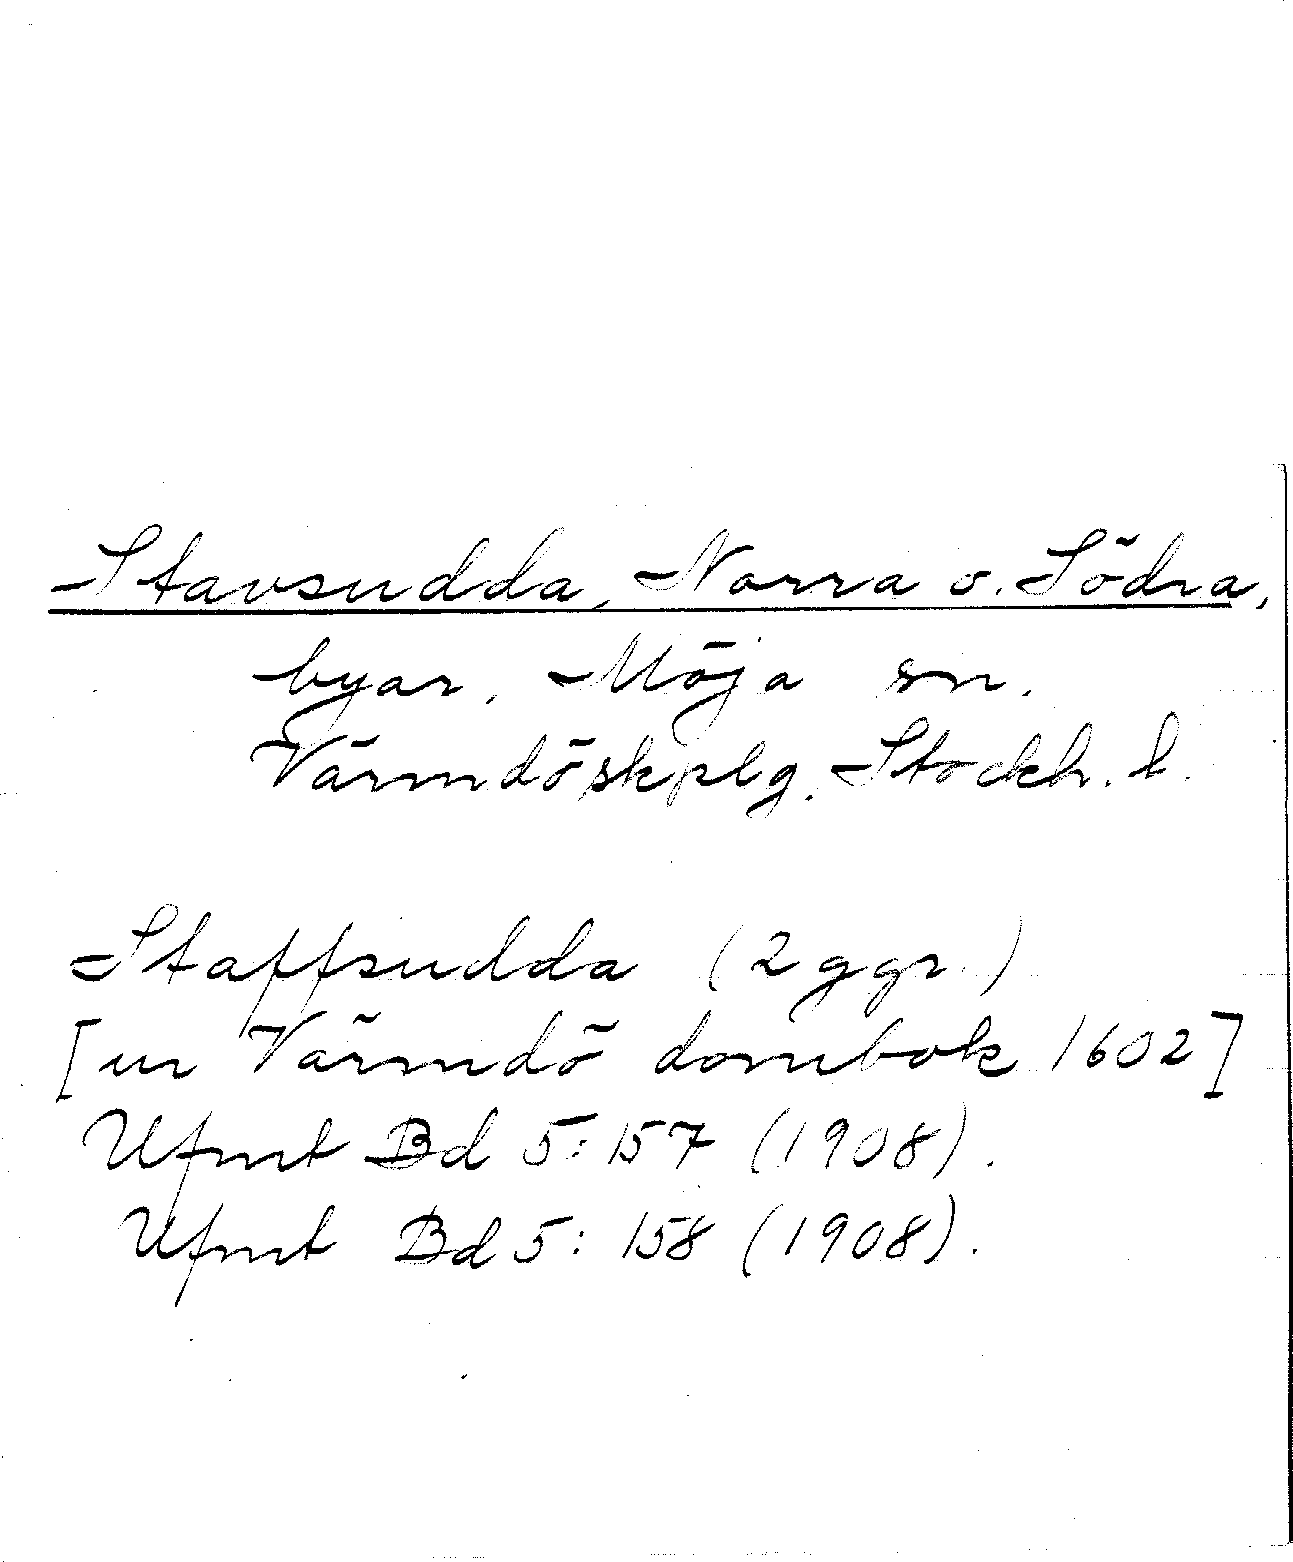 Stavsudda, Norra o. Södra,
byar, Möja sn.
Värmdöskplg. Stockh. l.
Staffsudda (2 ggr.)
[ur Värmdö dombok 1602]
Ufmt Bd 5: 157 (1908).
Ufmt Bd 5: 158 (1908).